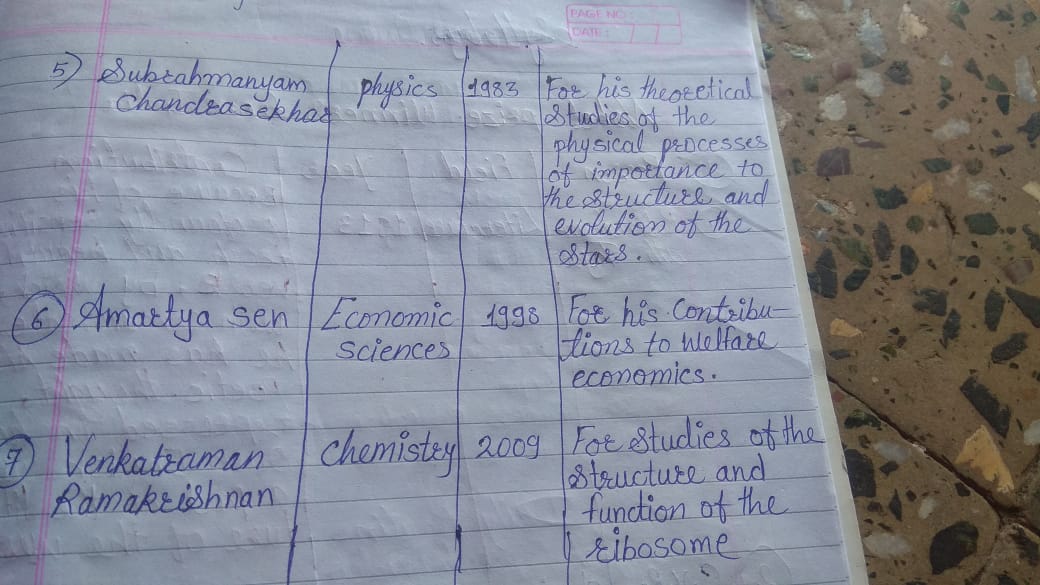 PAGE NO:
DATE: / /
5) Subrahmanyam physics 1983 For his theoretical
Chandrasekhar studies of the
physical processes
of importance to
the structure and
evolution of the
stars.
6 Amartya sen Economic 1998 For his Contribu-
sciences tions to welfare
economics.
7 Venkatraman chemistry 2009 For studies of the
Ramakrishnan structure and
function of the
ribosome